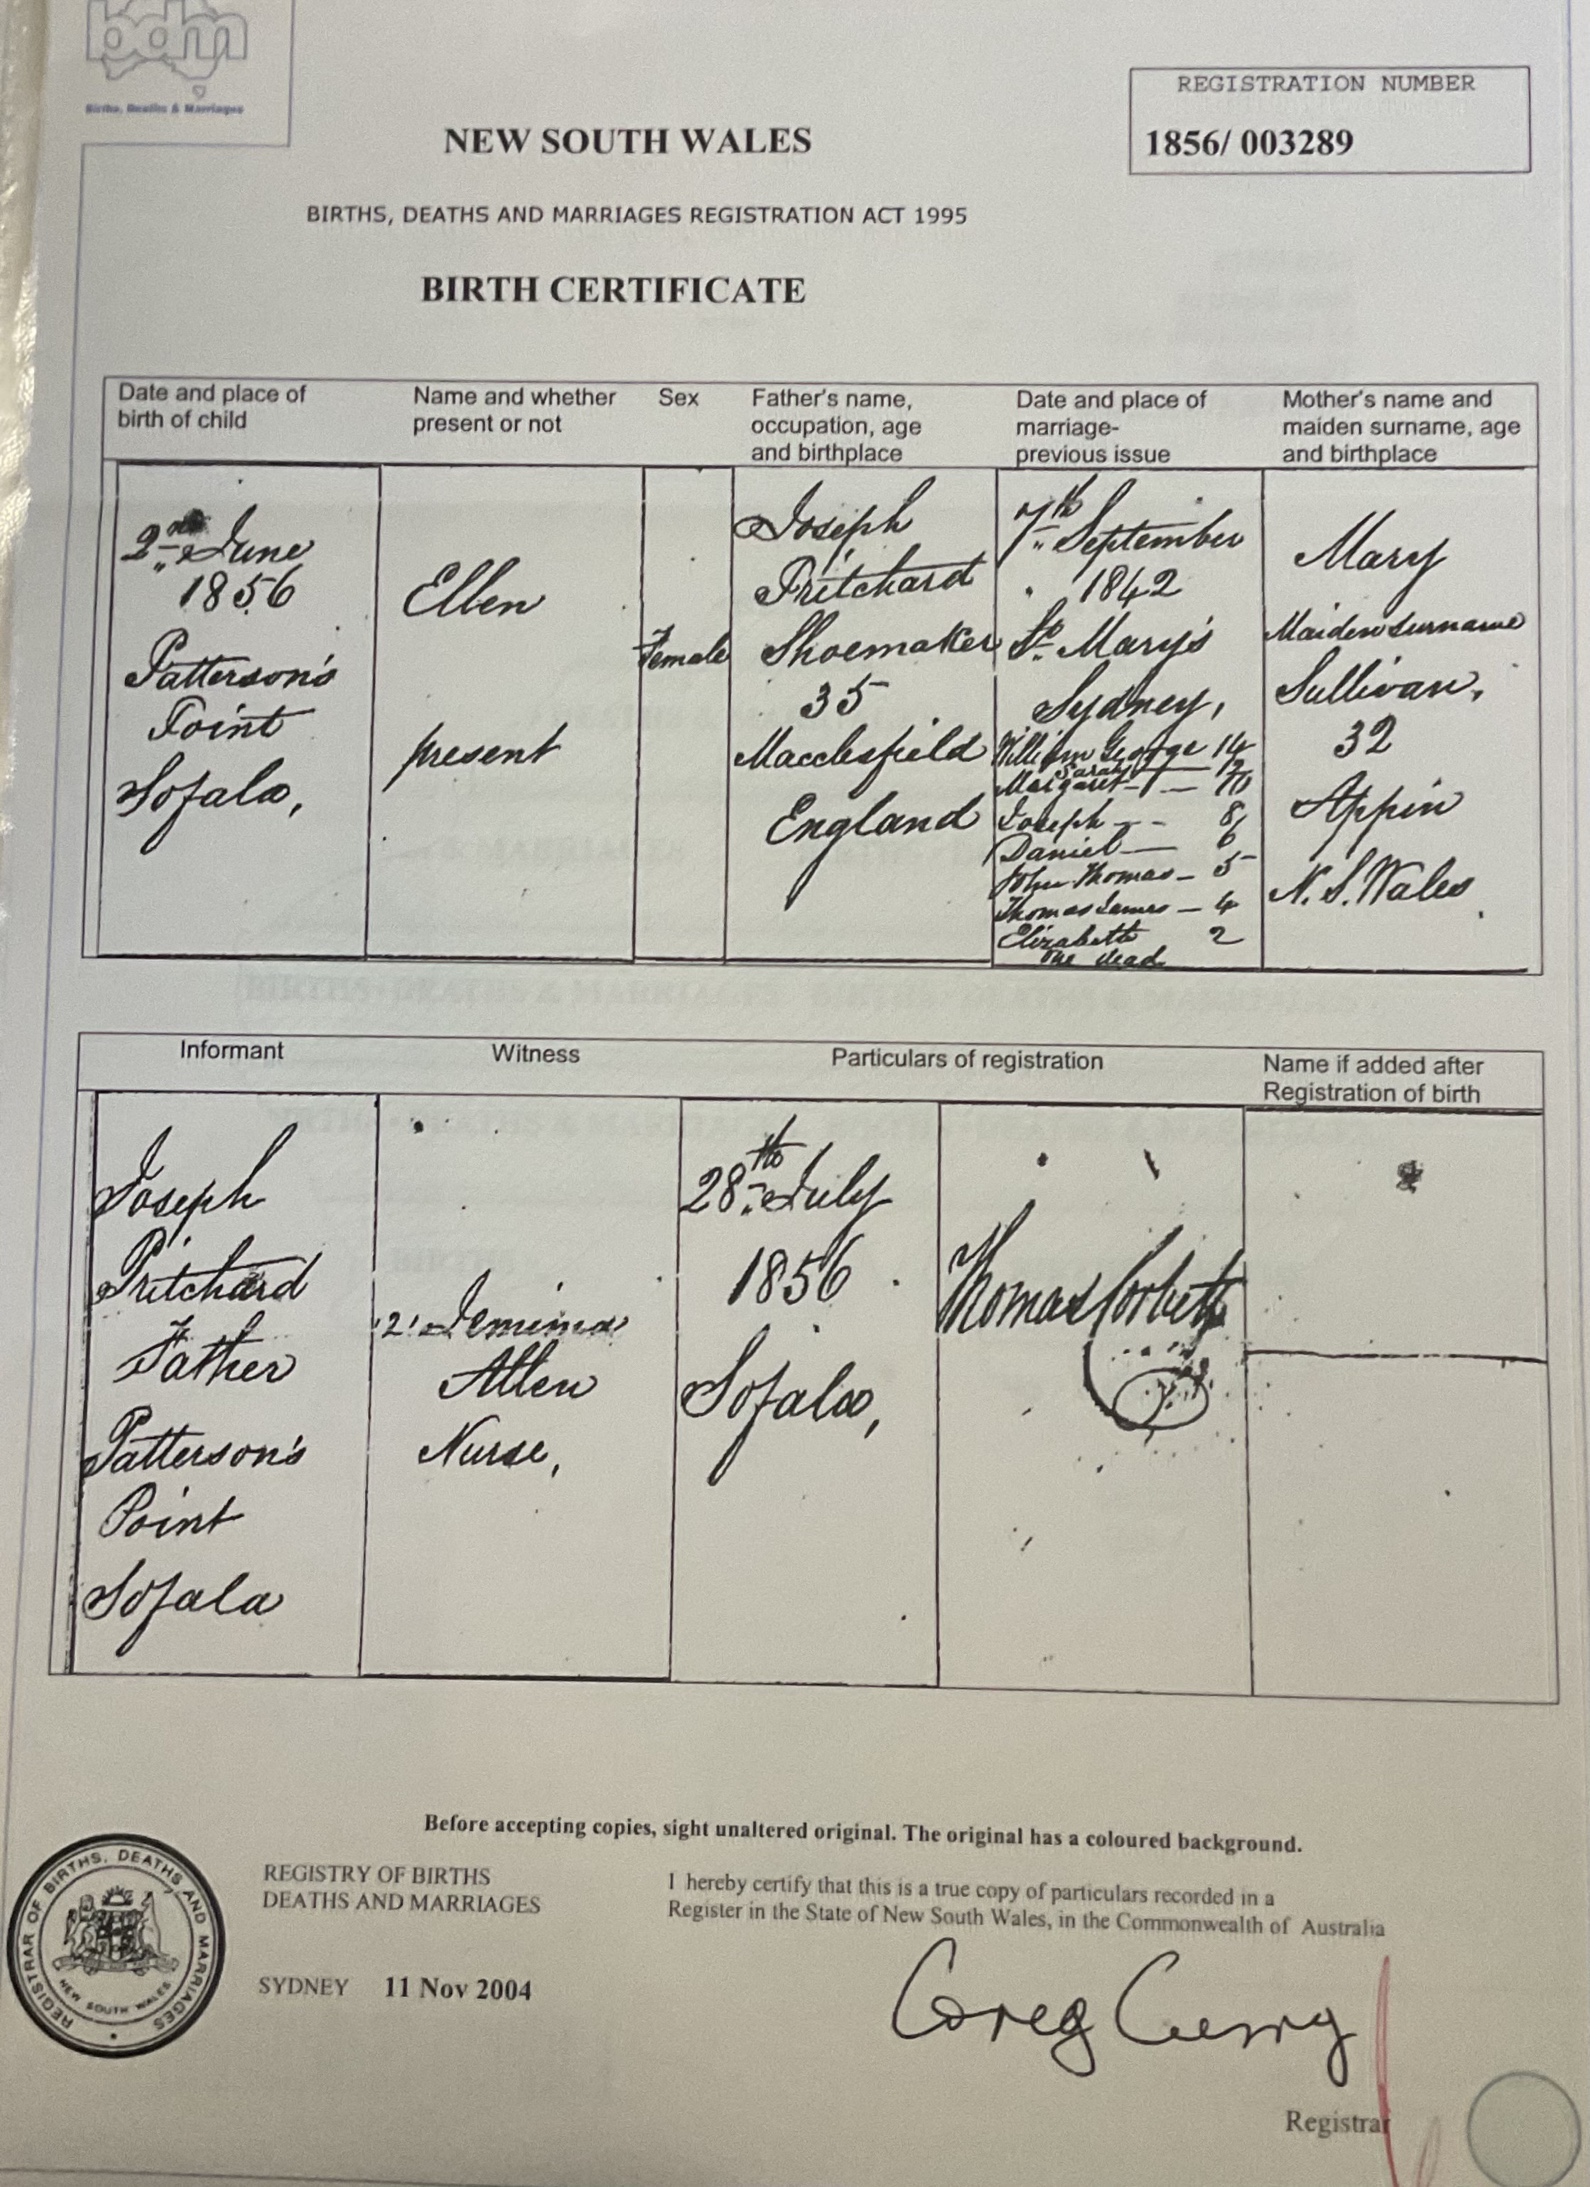 bdm
Births, Deaths & Marriages
REGISTRATION NUMBER
1856/ 003289
NEW SOUTH WALES
BIRTHS, DEATHS AND MARRIAGES REGISTRATION ACT 1995
BIRTH CERTIFICATE
Date and place of
birth of child
2nd June
1856
Patterson's
Point
Sofala,
Name and whether
present or not
Ellen
present
Sex
Female
Father's name,
occupation, age
and birthplace
Joseph
Pritchard
Shoemaker
35
Macclesfield
England
Date and place of
marriage-
previous issue
7th September
1842
St. Mary's
Sydney,
William George 14
Sarah — 12
Margaret — 10
Joseph -- 8
Daniel — 6
John Thomas — 5
Thomas James — 4
Elizabeth 2
one dead
Mother's name and
maiden surname, age
and birthplace
Mary
Maiden surname
Sullivan,
32
Appin
N. S. Wales
Informant
Joseph
Pritchard
Father
Patterson's
Point
Sofala
Witness
'2' Jemima
Allen
Nurse,
Particulars of registration
28th July
1856
Sofala,
Thomas Corbett
Name if added after
Registration of birth
Before accepting copies, sight unaltered original. The original has a coloured background.
REGISTRAR OF BIRTHS, DEATHS AND MARRIAGES
NEW SOUTH WALES
REGISTRY OF BIRTHS
DEATHS AND MARRIAGES
SYDNEY 11 Nov 2004
I hereby certify that this is a true copy of particulars recorded in a
Register in the State of New South Wales, in the Commonwealth of Australia
Greg Curry
Registrar